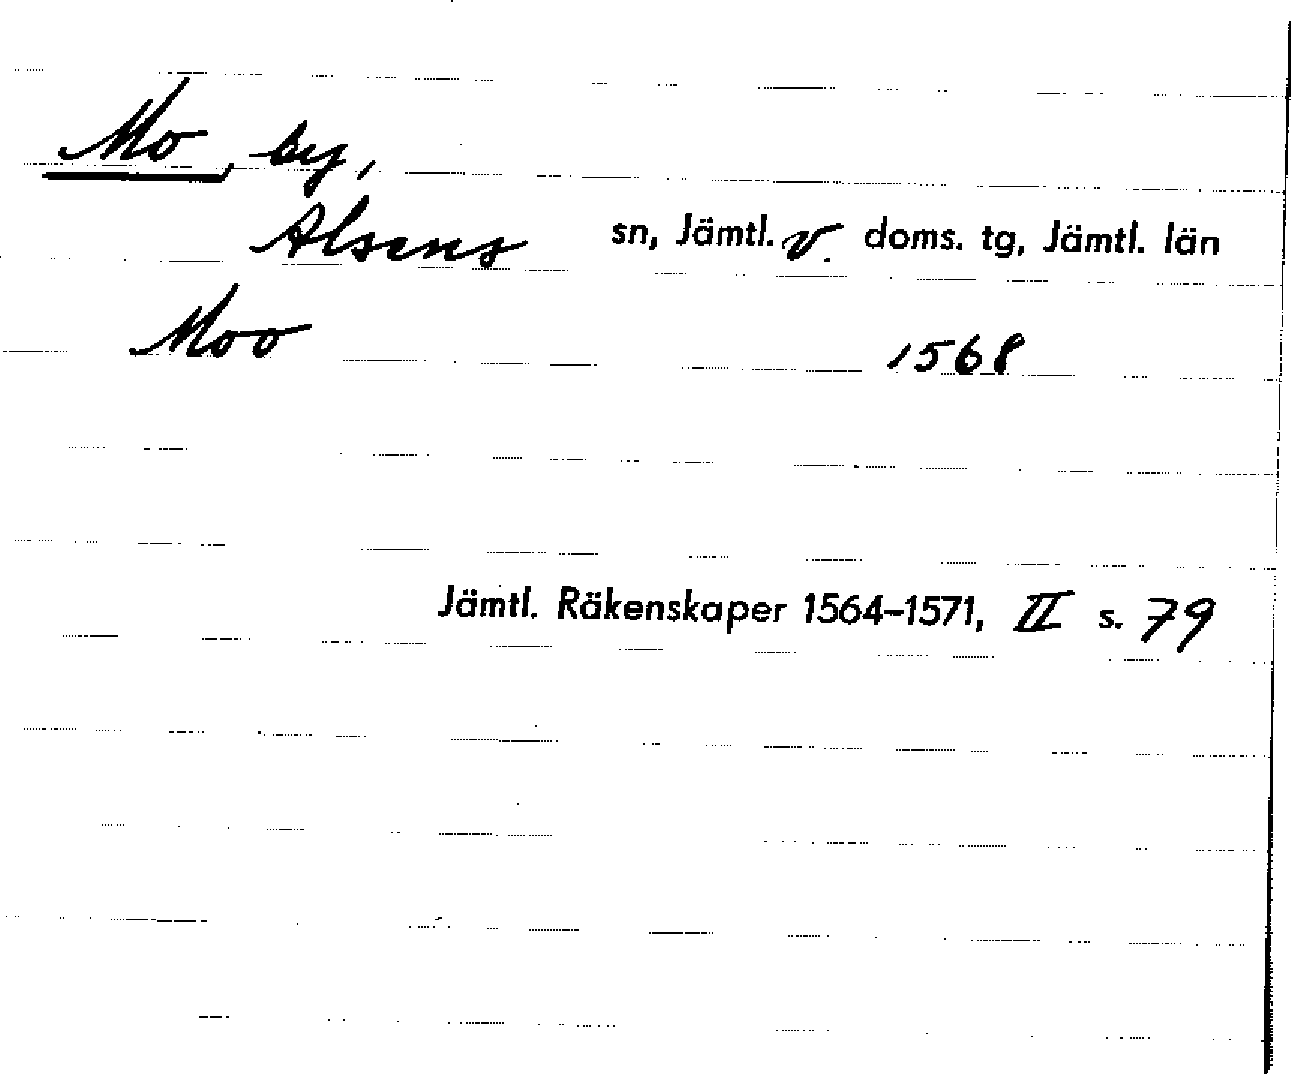 Mo, by,
Alsens sn, Jämtl. v. doms. tg, Jämtl. län
Moo 1568
Jämtl. Räkenskaper 1564–1571, II s. 79